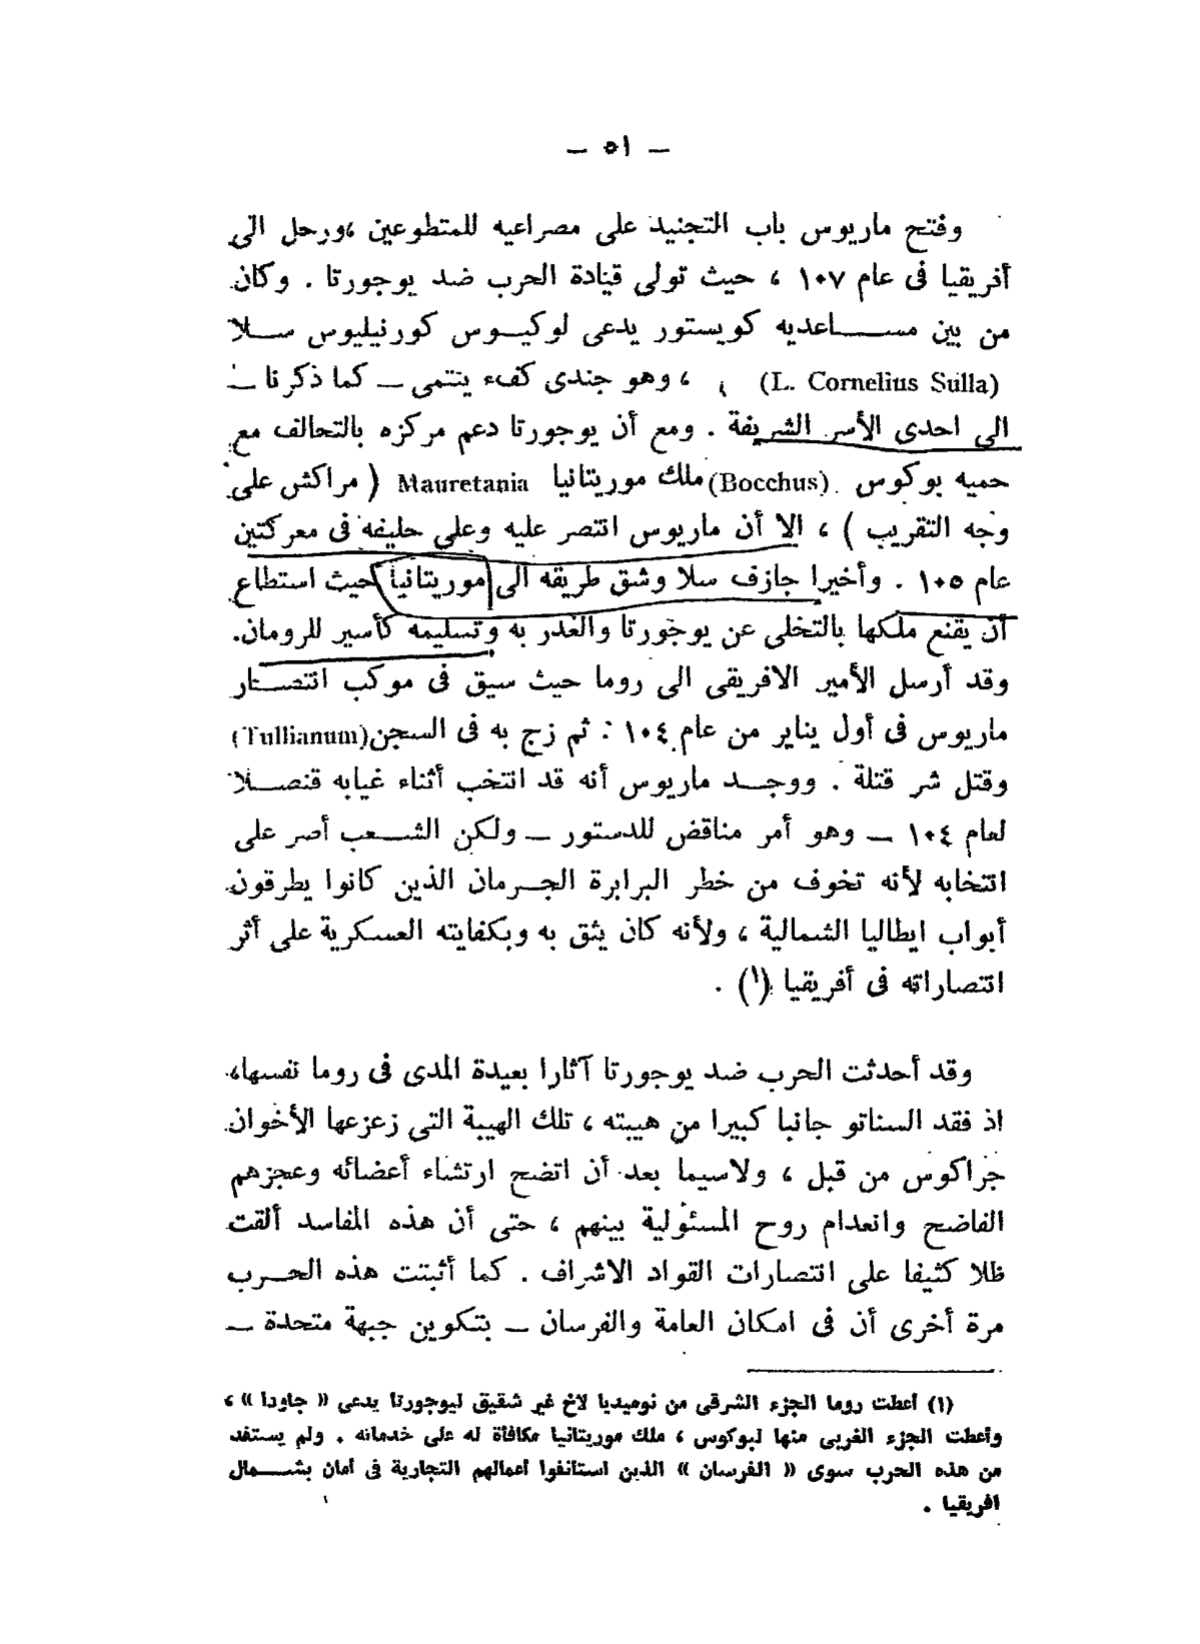 — ٥١ —
وفتح ماريوس باب التجنيد على مصراعيه للمتطوعين ،ورحل الى
أفريقيا فى عام ١٠٧ ، حيث تولى قيادة الحرب ضد يوجورتا . وكان
من بين مساعديه كويستور يدعى لوكيوس كورنيليوس سلا
(L. Cornelius Sulla) ، وهو جندى كفء ينتمى — كما ذكرنا —
الى احدى الأسر الشريفة . ومع أن يوجورتا دعم مركزه بالتحالف مع
حميه بوكوس (Bocchus) ملك موريتانيا Mauretania ( مراكش على
وجه التقريب ) ، الا أن ماريوس انتصر عليه وعلى حليفه فى معركتين
عام ١٠٥ . وأخيرا جازف سلا وشق طريقه الى موريتانيا حيث استطاع
أن يقنع ملكها بالتخلى عن يوجورتا والغدر به وتسليمه كأسير للرومان.
وقد أرسل الأمير الافريقى الى روما حيث سيق فى موكب انتصار
ماريوس فى أول يناير من عام ١٠٤ : ثم زج به فى السجن (Tullianum)
وقتل شر قتلة . ووجد ماريوس أنه قد انتخب أثناء غيابه قنصلا
لعام ١٠٤ — وهو أمر مناقض للدستور — ولكن الشعب أصر على
انتخابه لأنه تخوف من خطر البرابرة الجرمان الذين كانوا يطرقون
أبواب ايطاليا الشمالية ، ولأنه كان يثق به وبكفايته العسكرية على أثر
انتصاراته فى أفريقيا (١) .
وقد أحدثت الحرب ضد يوجورتا آثارا بعيدة المدى فى روما نفسها،
اذ فقد السناتو جانبا كبيرا من هيبته ، تلك الهيبة التى زعزعها الأخوان
جراكوس من قبل ، ولاسيما بعد أن اتضح ارتشاء أعضائه وعجزهم
الفاضح وانعدام روح المسئولية بينهم ، حتى أن هذه المفاسد ألقت
ظلا كثيفا على انتصارات القواد الاشراف . كما أثبتت هذه الحرب
مرة أخرى أن فى امكان العامة والفرسان — بتكوين جبهة متحدة —
(١) أعطت روما الجزء الشرقى من نوميديا لاخ غير شقيق ليوجورتا يدعى « جاودا » ،
وأعطت الجزء الغربى منها لبوكوس ، ملك موريتانيا مكافاة له على خدماته . ولم يستفد
من هذه الحرب سوى « الفرسان » الذين استانفوا أعمالهم التجارية فى أمان بشمال
افريقيا .